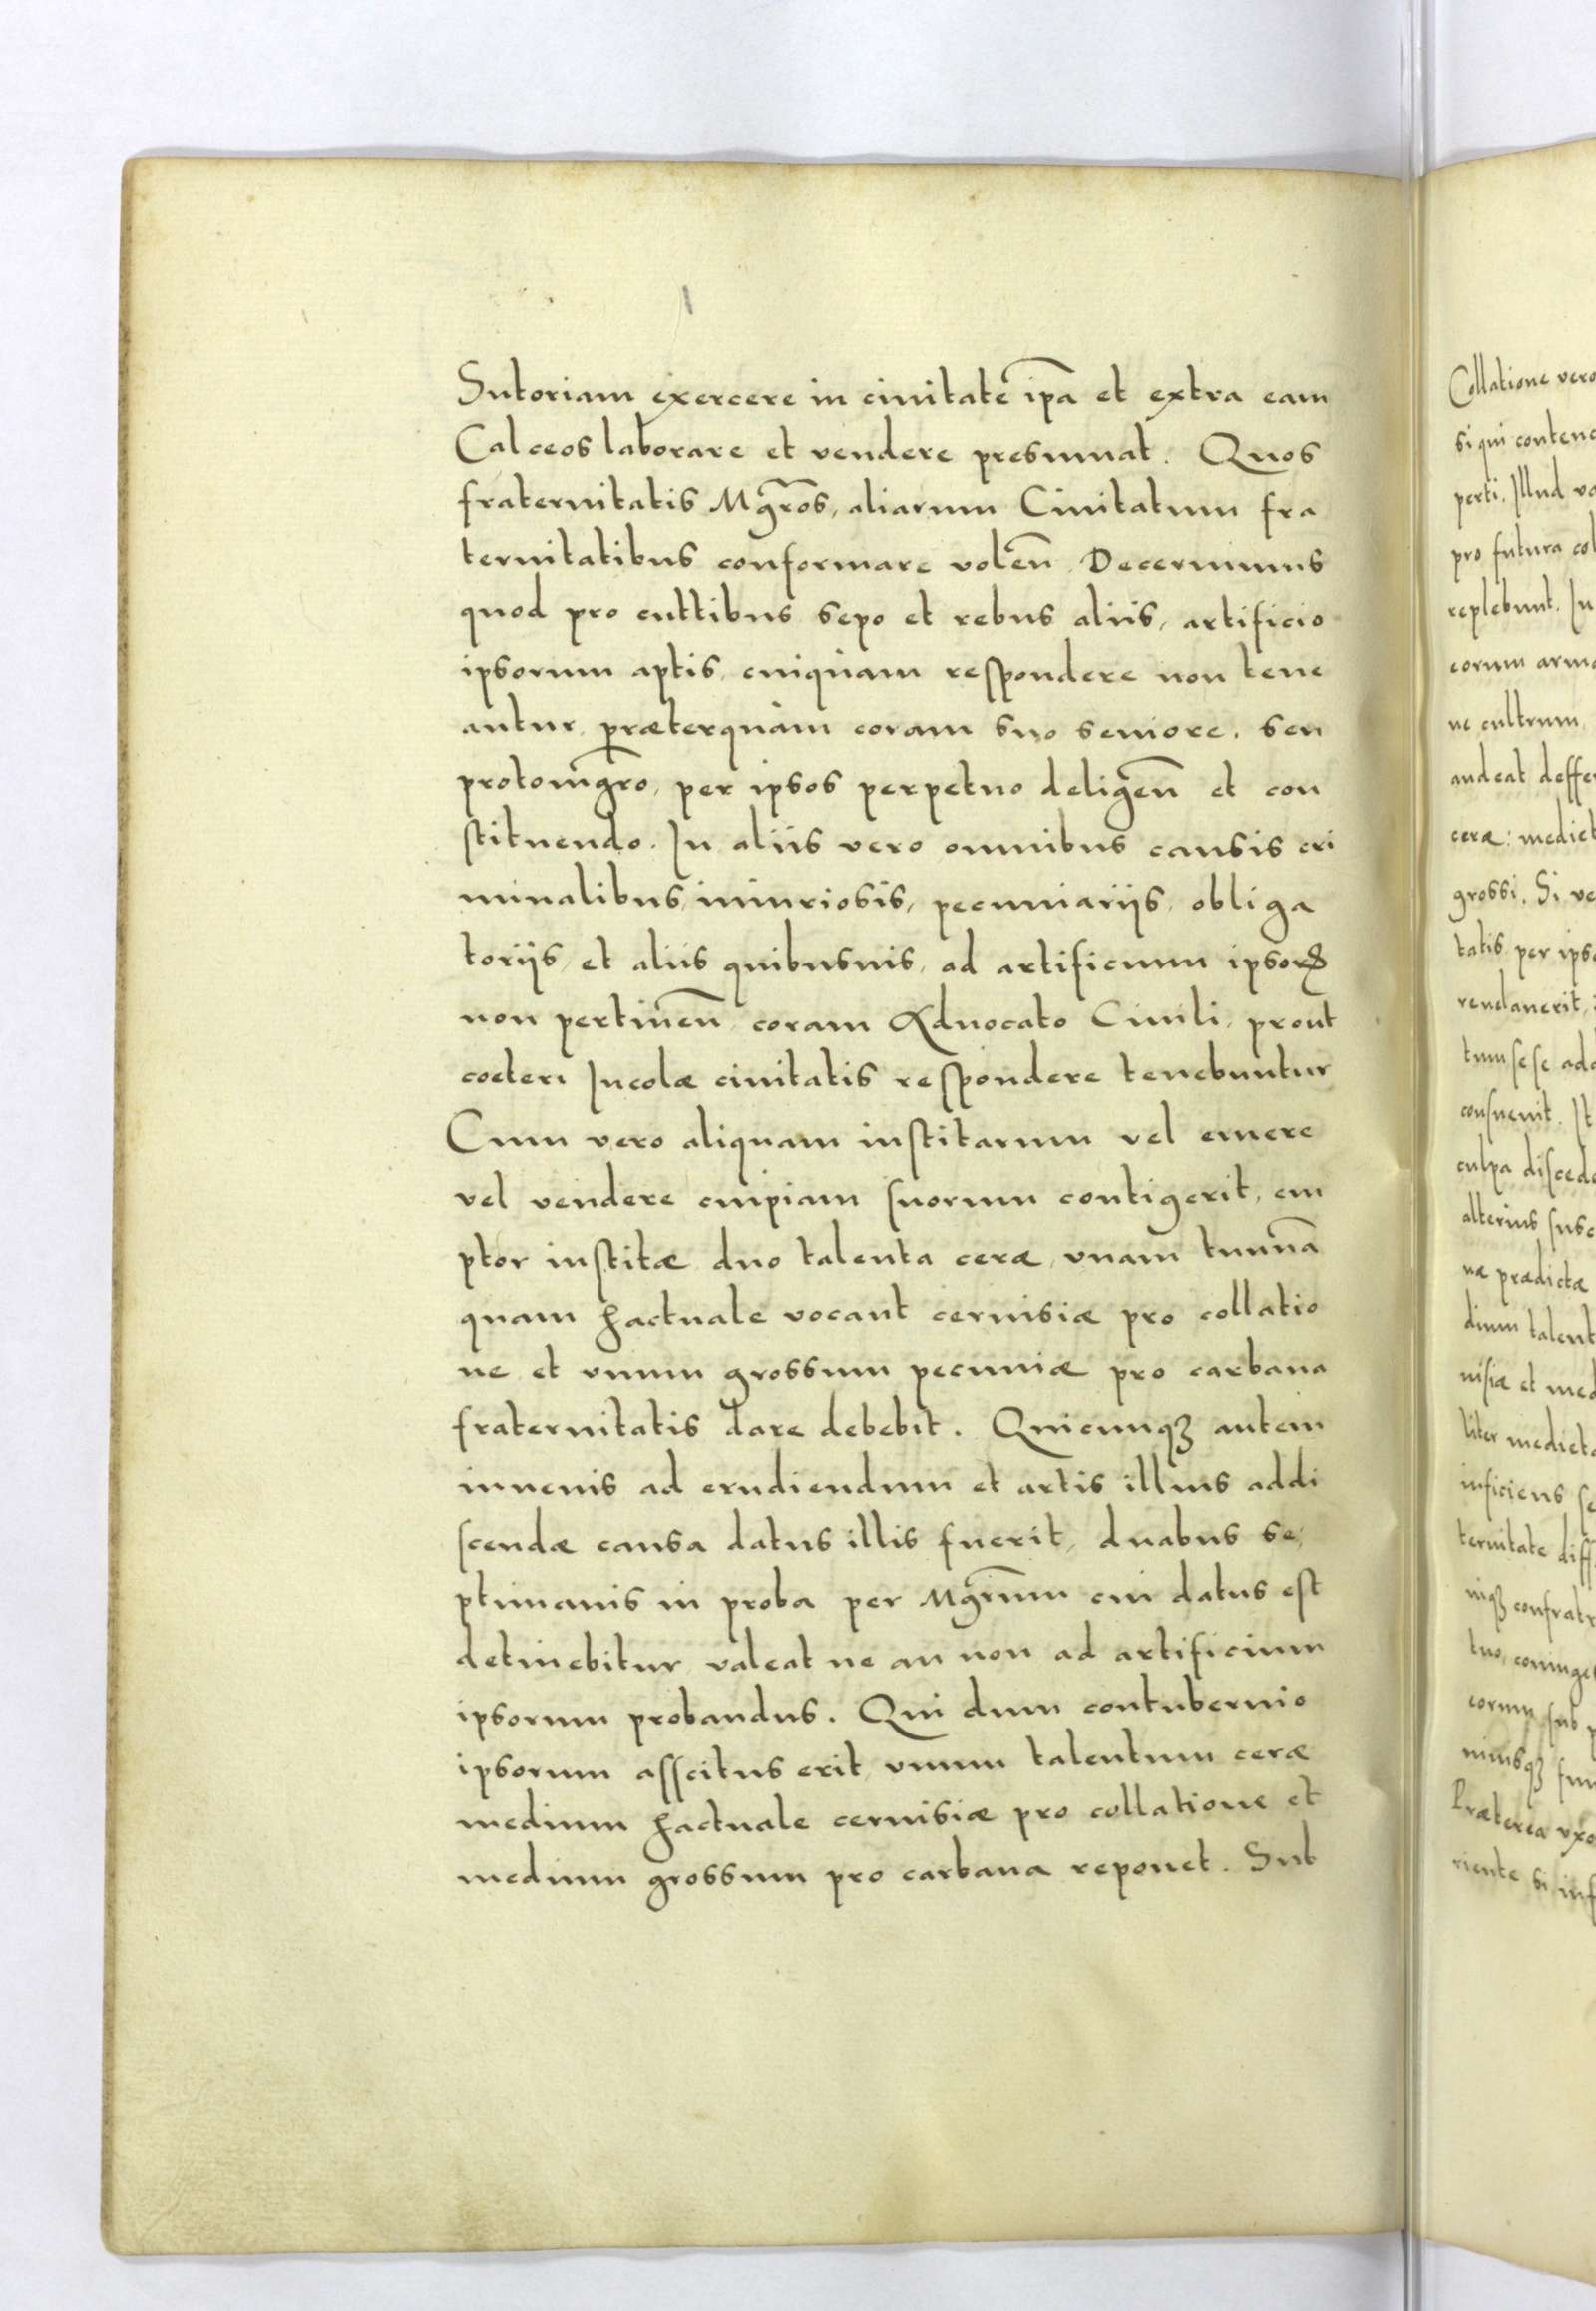 Sutoriam exercere in ciuitate ip̄a et extra eam
Calceos laborare et vendere presumat. Quos
fraternitatis Mgr̄os, aliarum Ciuitatum fra
ternitatibus conformare voleñ Decernimus
quod pro cuttibus sepo et rebus aliis, artificio
ipsorum aptis, cuiquam respondere non tene
antur, præterquàm coram suo seniore, seu
protom̄gro, per ipsos perpetuo deligeñ et con
stituendo. In aliis vero omnibus causis cri
minalibus, iniuriosis, pecuniariis, obliga
toriis, et aliis quibusuis, ad artificium ipsorꝝ
non pertineñ, coram Aduocato Ciuili, prout
cœteri Incolæ ciuitatis respondere tenebuntur
Cum vero aliquam institarum vel emere
vel vendere cuipiam suorum contigerit, em
ptor institæ duo talenta ceræ, vnam tunnā
quam hactuale vocant ceruisiæ pro collatio
ne et vnum grossum pecuniæ pro carbana
fraternitatis dare debebit. Quicunqꝫ autem
iuuenis ad erudiendum et artis illius addi
scendæ causa datus illis fuerit, duabus se
ptimanis in proba per Mgr̄um cui datus est
detinebitur, valeat ne an non ad artificium
ipsorum probandus. Qui dum contubernio
ipsorum asscitus erit, vnum talentum ceræ
medium hactuale ceruisiæ pro collatione et
medium grossum pro carbana reponet. Sub
Collatione vero
si qui conten
perti. Illud
pro futura
replebunt.
eorum
ne cultrum,
audeat
ceræ: 
grossi. Si
tatis per
tum sese
consueuit.
culpa
alterius
næ prædictæ
dium talent
nisiæ et
liter
inficiens
ternitate
niqꝫ
tuo,
eorum sub
niusqꝫ
Præterea
riente si